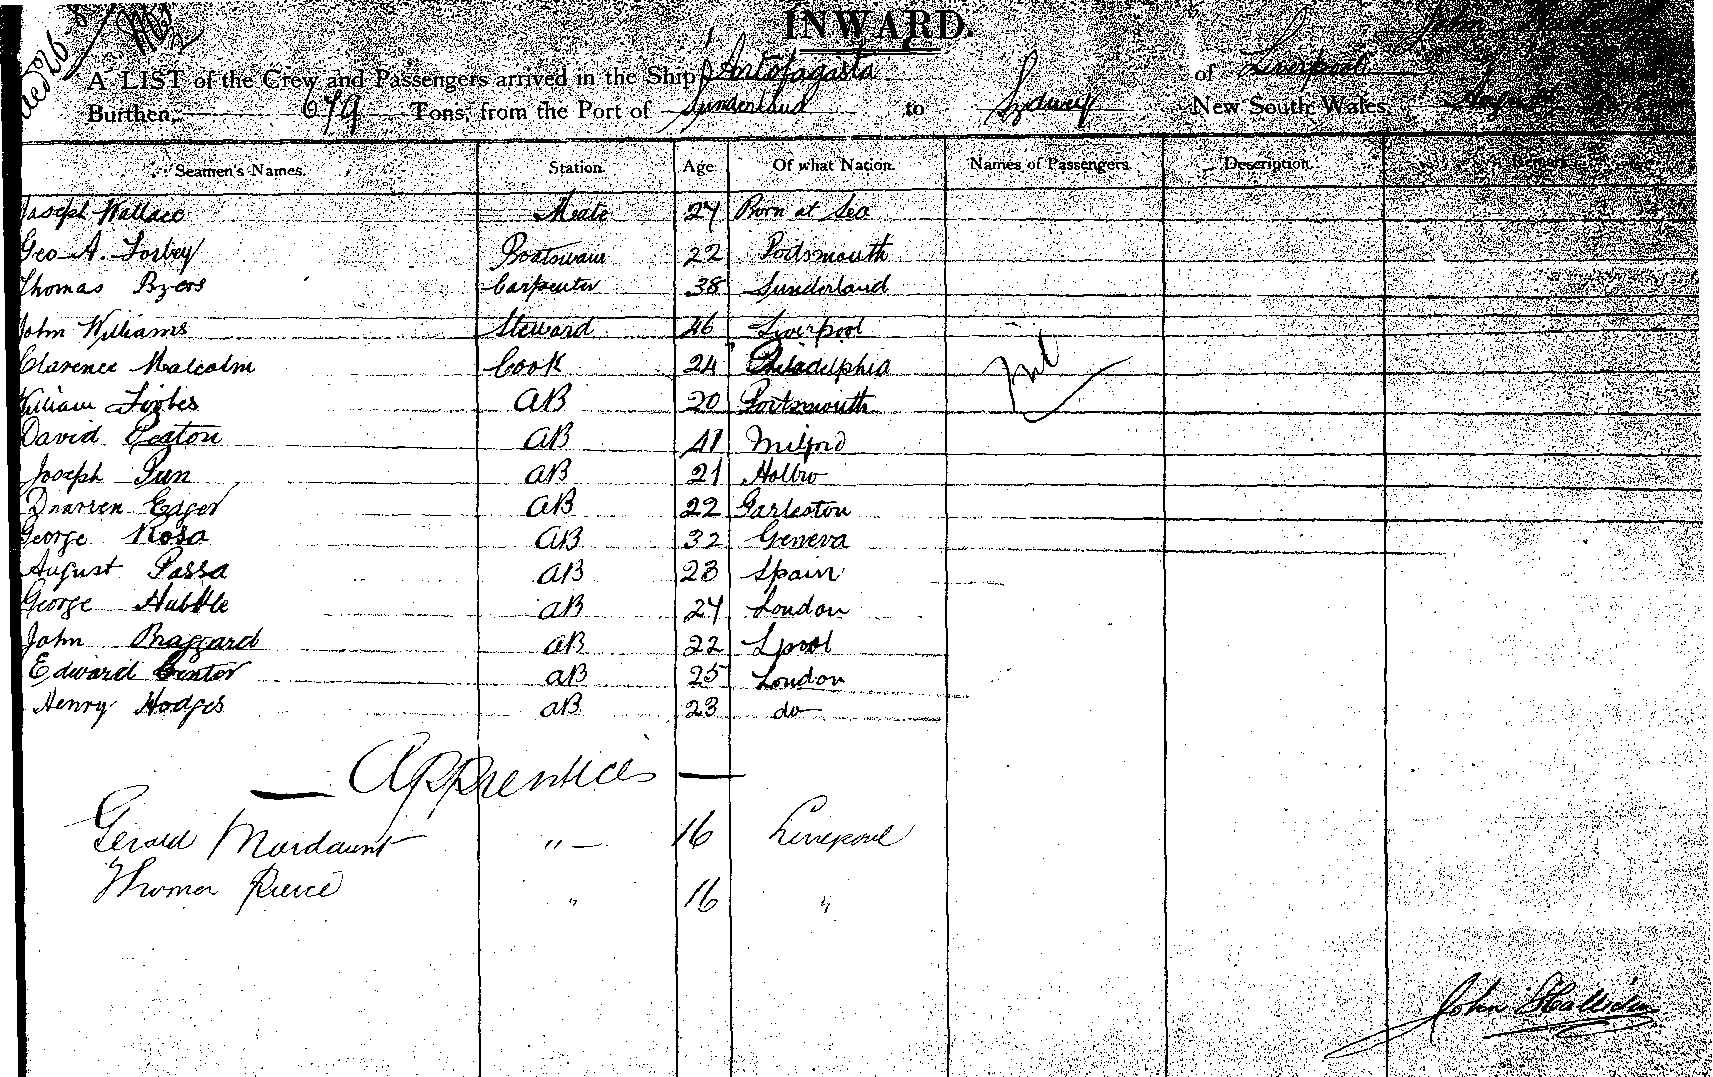 INWARD.
A LIST of the Crew and Passengers arrived in the Ship Antofagasta of Liverpool John
Burthen, 679 Tons, from the Port of Sunderland to Sydney New South Wales August
Seamen's Names. Station. Age Of what Nation. Names of Passengers. Description. Remarks
Joseph Wallace Mate 24 Born at Sea
Geo A. Forbey Boatswain 22 Portsmouth
Thomas Byers Carpenter 38 Sunderland
John Williams Steward 46 Liverpool
Clarence Malcolm Cook 24 Philadelphia
Nil
William Forbes AB 20 Portsmouth
David Peaton AB 41 Milford
Joseph AB 21
Edger AB 22 Garleston
George Rosa AB 32 Geneva
August Passa AB 23 Spain
George Hubble AB 24 London
John Braggard AB 22 Lpool
Edward AB 25 London
Henry Hodges AB 23 do
Apprentices
Gerald Mordaunt " 16 Liverpool
Thomas Pierce " 16 "
John Halliday